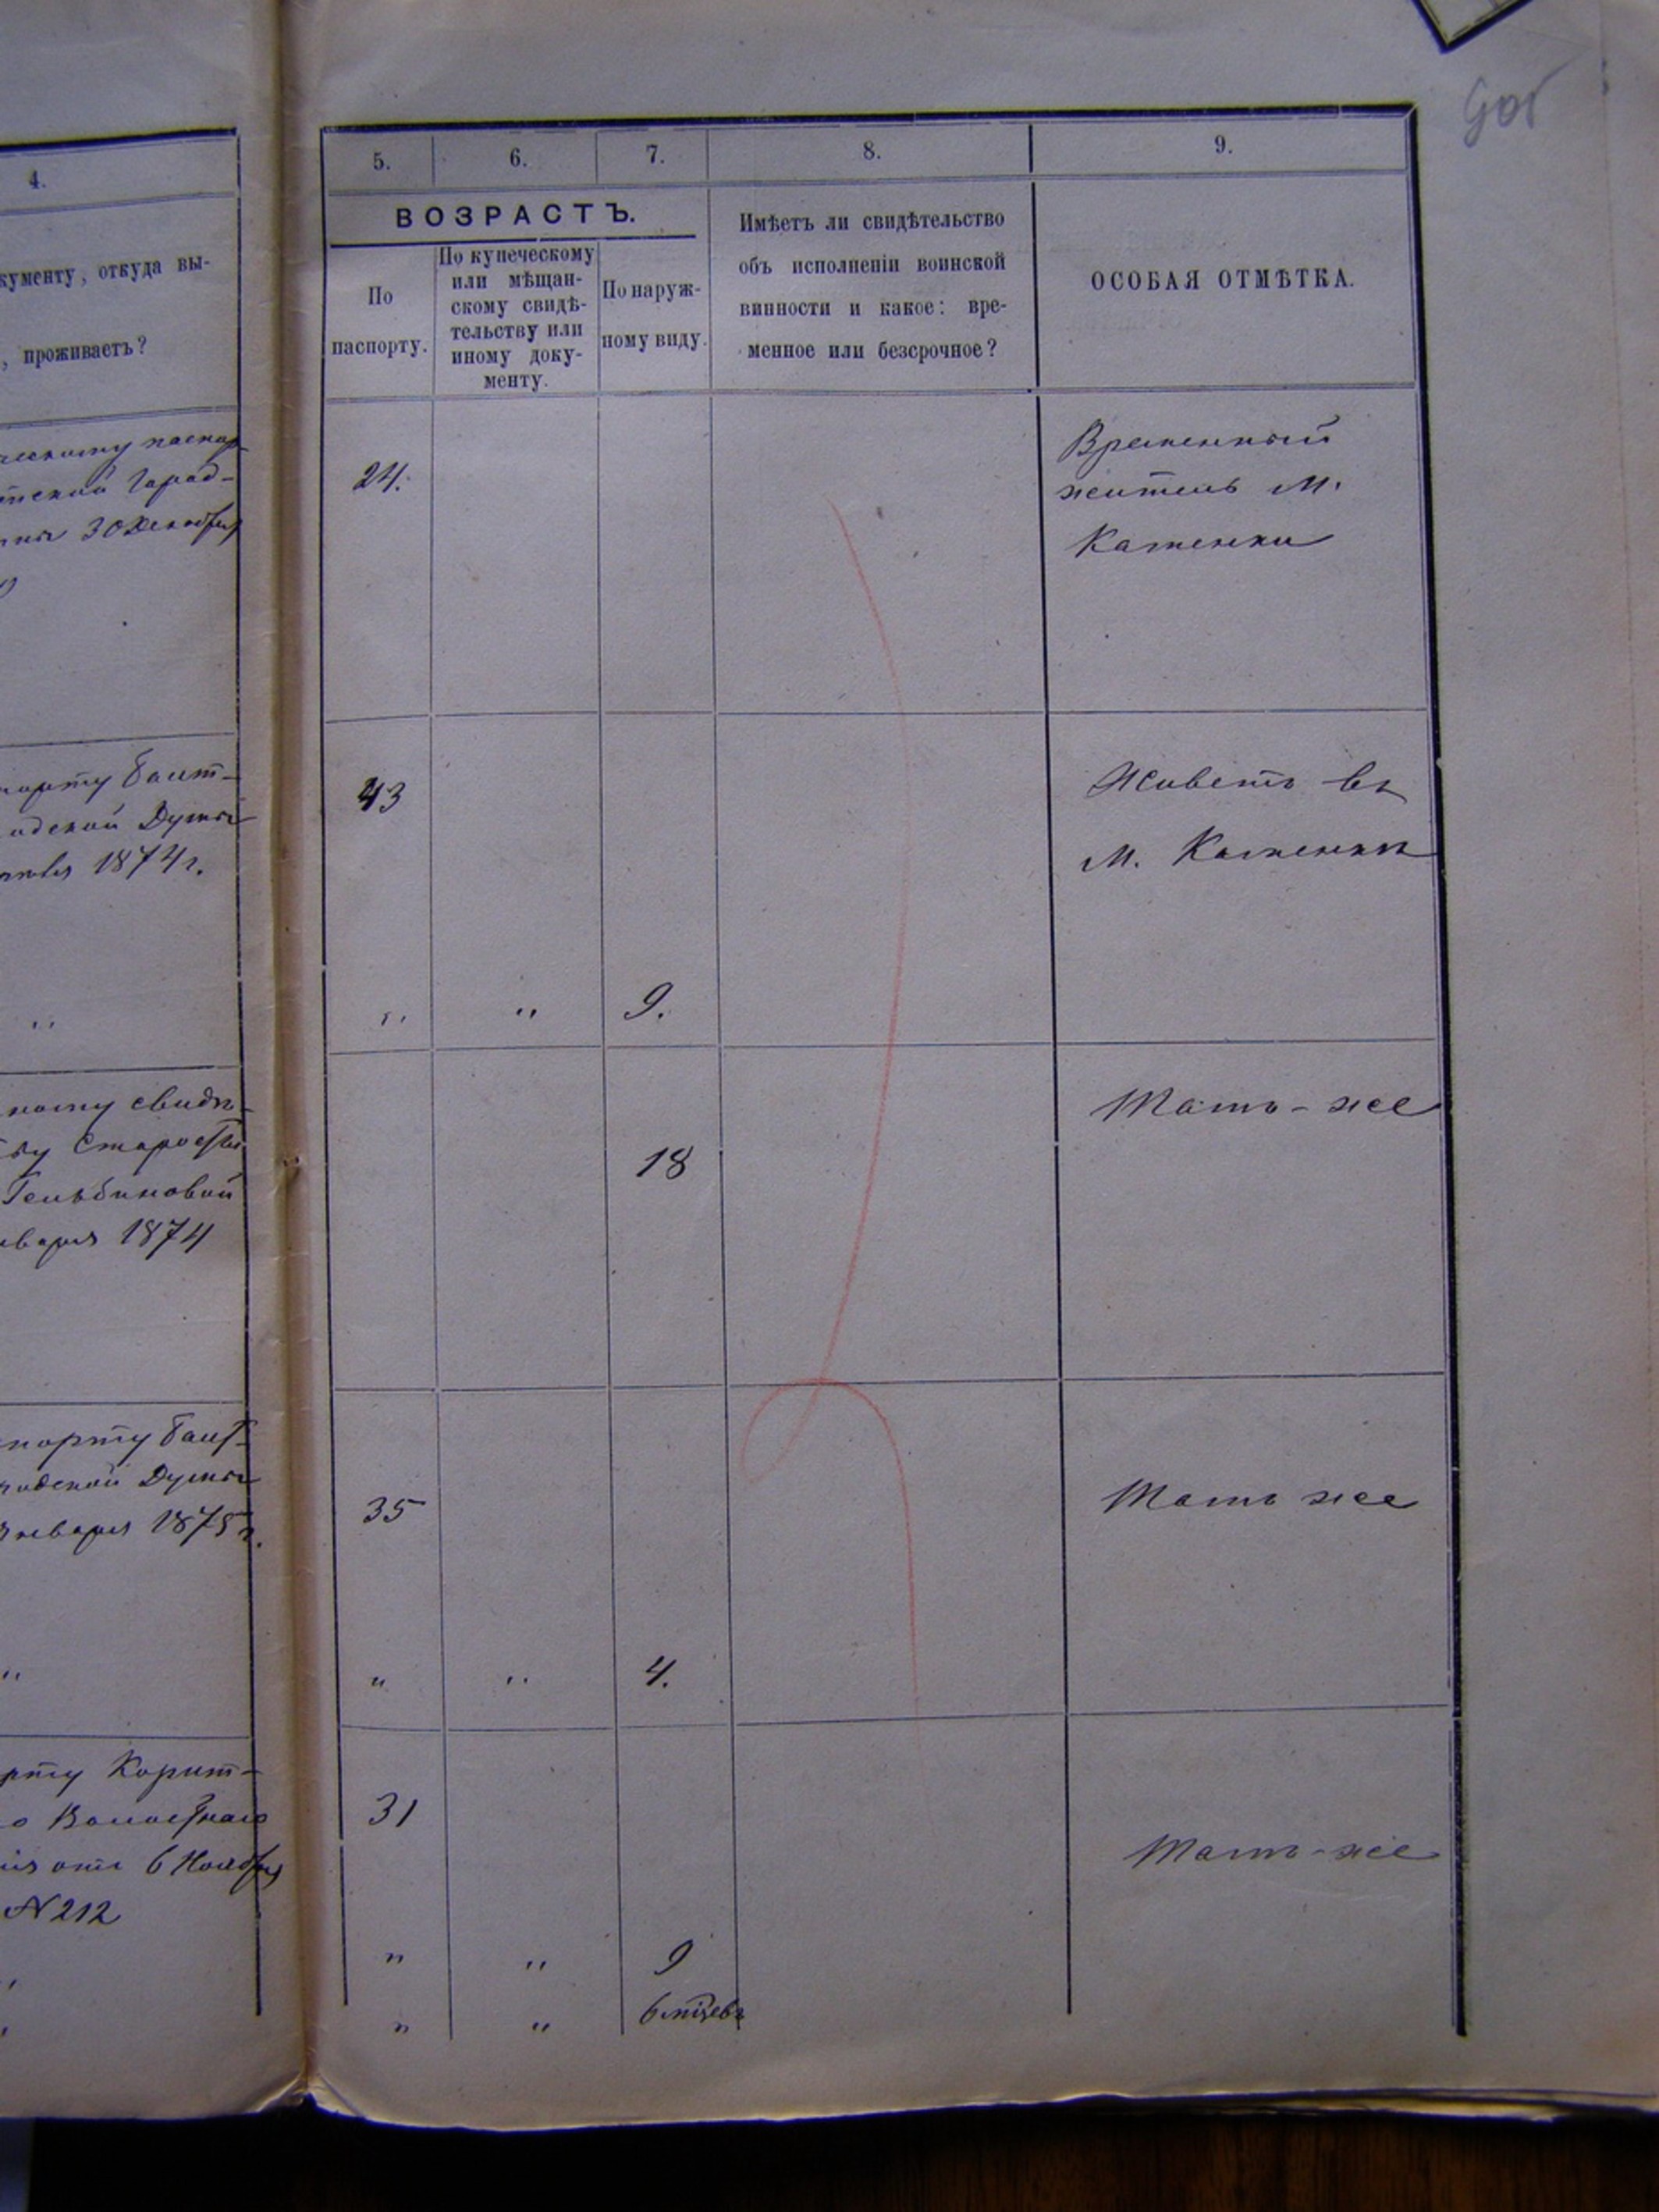 4.
кументу, откуда вы-
, проживаетъ?
ческому паспор
тской Город-
30 Декабря
порту Балт-
одской Думы
1874 г.
"
ному свидѣ-
ву Старосты
Гельбиновой
нваря 1874
порту Балт-
родской Думы
Января 1875 г.
"
рту Корит-
о Волостнаго
ія отъ 6 Ноября
№ 212
5. 6. 7. 8. 9.
ВОЗРАСТЪ.
По
паспорту.
По купеческому
или мѣщан-
скому свидѣ-
тельству или
иному доку-
менту.
По наруж-
ному виду.
Имѣетъ ли свидѣтельство
объ исполненіи воинской
винности и какое: вре-
менное или безсрочное?
ОСОБАЯ ОТМѢТКА.
24.
Временный
житель м.
Каменки
43
Живетъ въ
м. Каменкѣ
" " 9.
18
Тамъ-же
35
Тамъ же
" " 4.
31
Тамъ-же
" " 9
" " 6 мѣсяцевъ